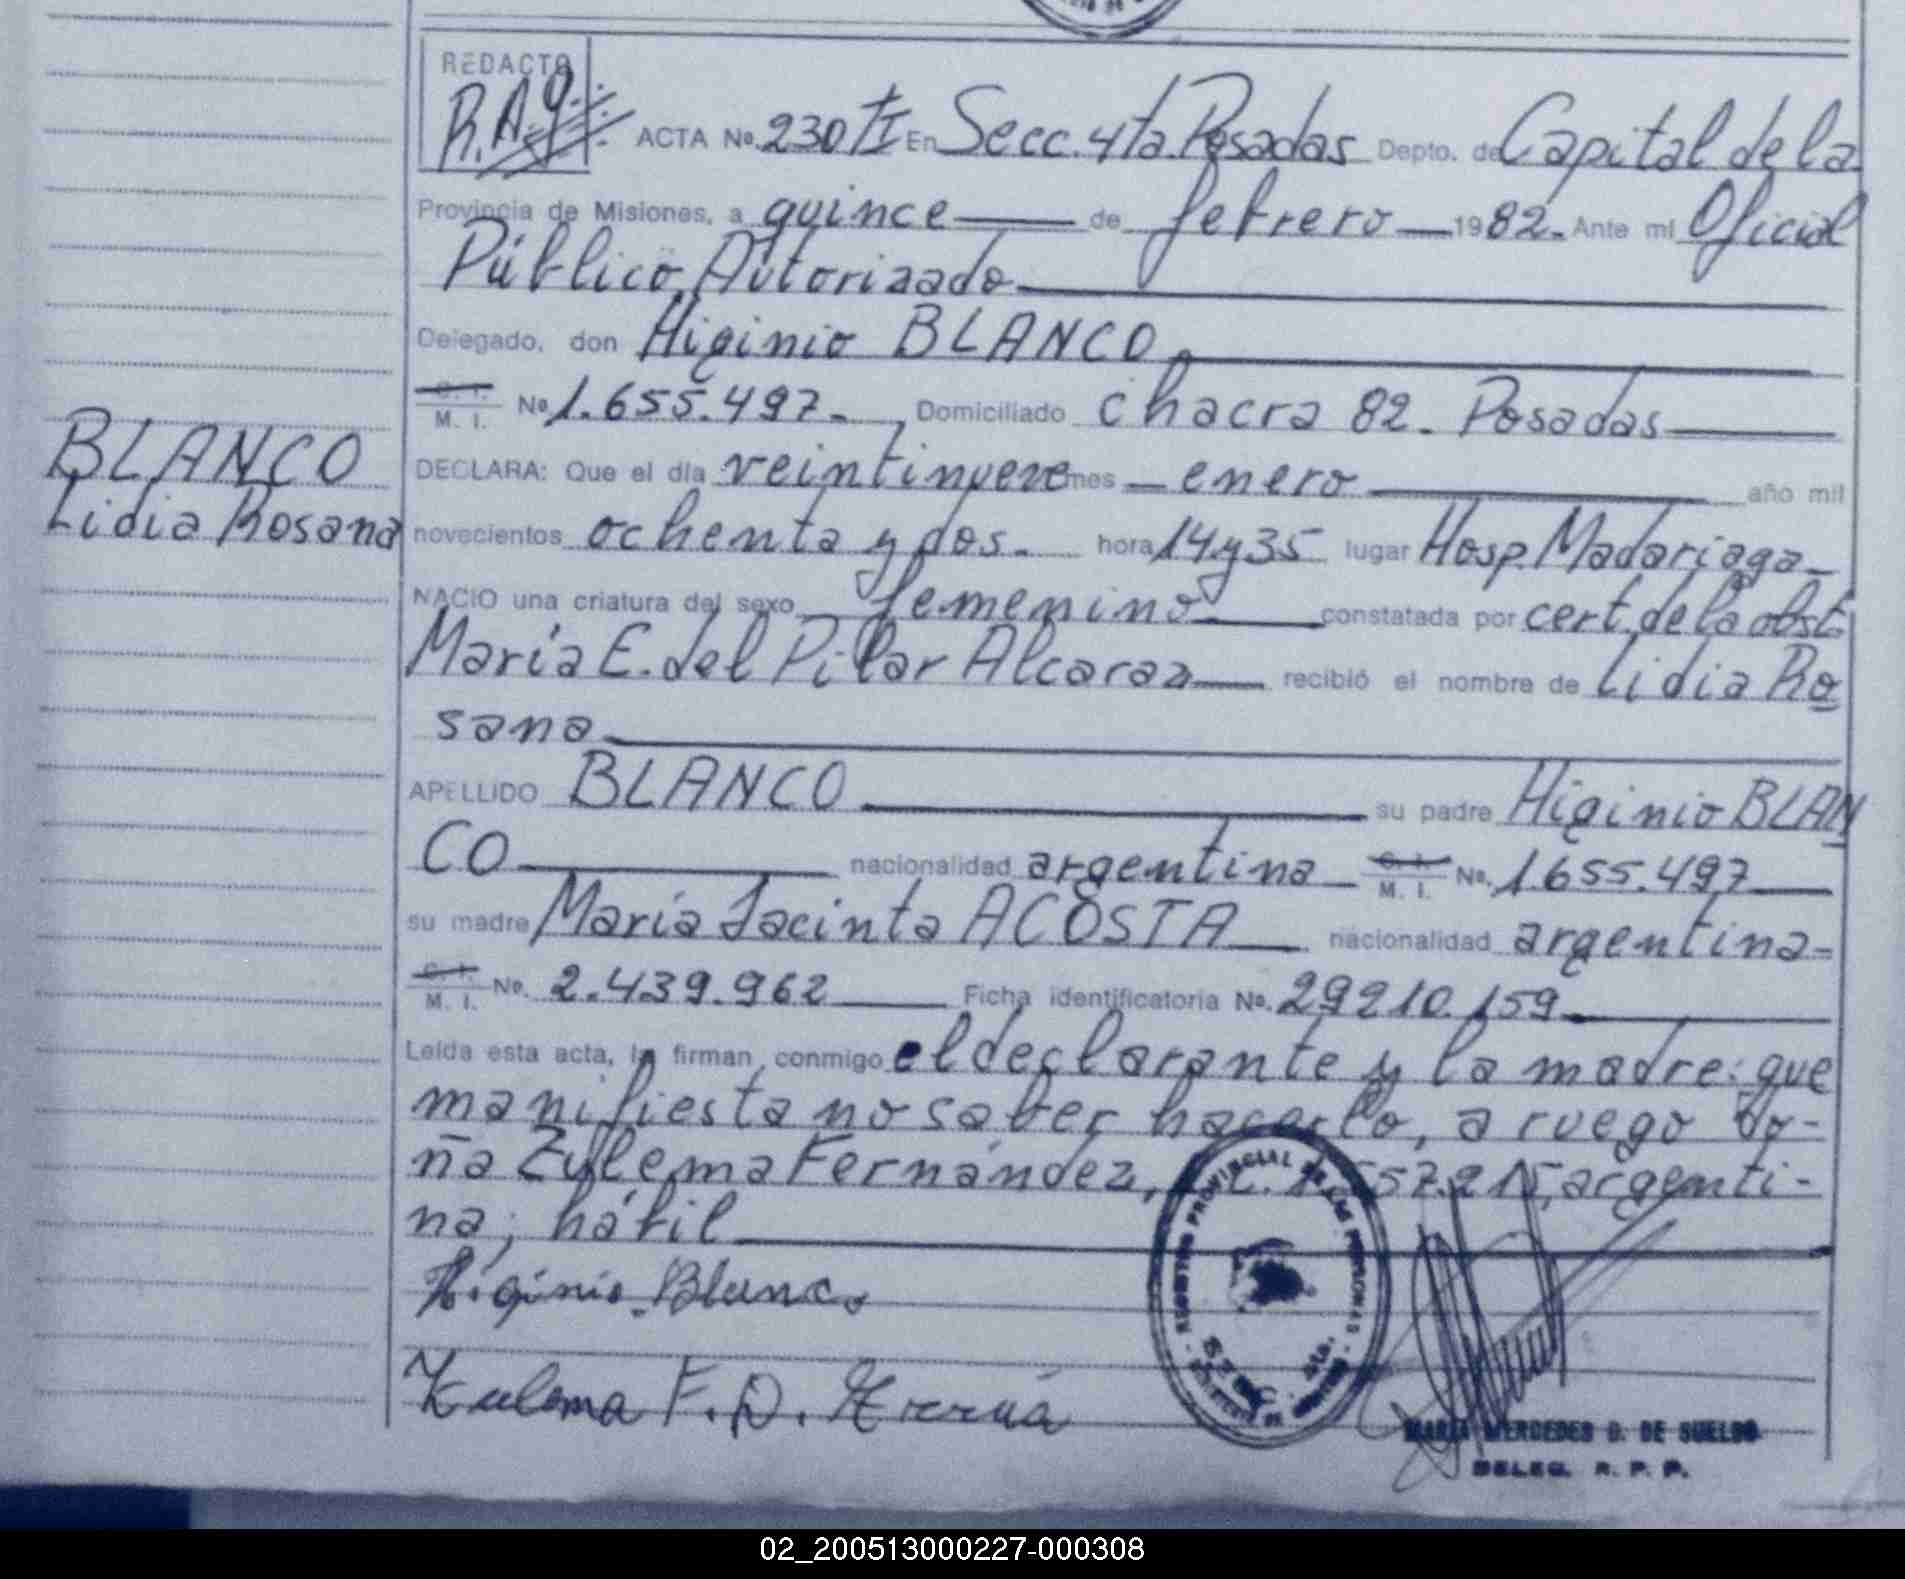 REDACTO
R.A.g.
ACTA No. 230 tI En Secc. 4ta. Posadas Depto. de Capital de la
Provincia de Misiones, a quince de febrero 1982. Ante mi Oficial
Público Autorizado
Delegado, don Higinio BLANCO
C. I. M. I. No 1.655.497. Domiciliado chacra 82. Posadas
DECLARA: Que el día veintinueve mes enero año mil
novecientos ochenta y dos. hora 14 y 35 lugar Hosp. Madariaga
NACIO una criatura del sexo femenino constatada por cert. de la obst.
María E. del Pilar Alcaraz recibió el nombre de Lidia Ro
sana
APELLIDO BLANCO su padre Higinio BLAN
CO nacionalidad argentina C. I. M. I. No. 1.655.497
su madre María Jacinta ACOSTA nacionalidad argentina
C. I. M. I. No. 2.439.962 Ficha identificatoria No. 29210.159
Leída esta acta, la firman conmigo el declarante y la madre: que
manifiesta no saber hacerlo, a ruego do-
ña Zulema Fernández, argenti-
na; hábil
Higinio Blanco
Zulema F. D.
BLANCO
Lidia Rosana
REGISTRO PROVINCIAL DE LAS PERSONAS
MARIA MERCEDES D. DE SUELDO
DELEG. R. P. P.
02_200513000227-000308